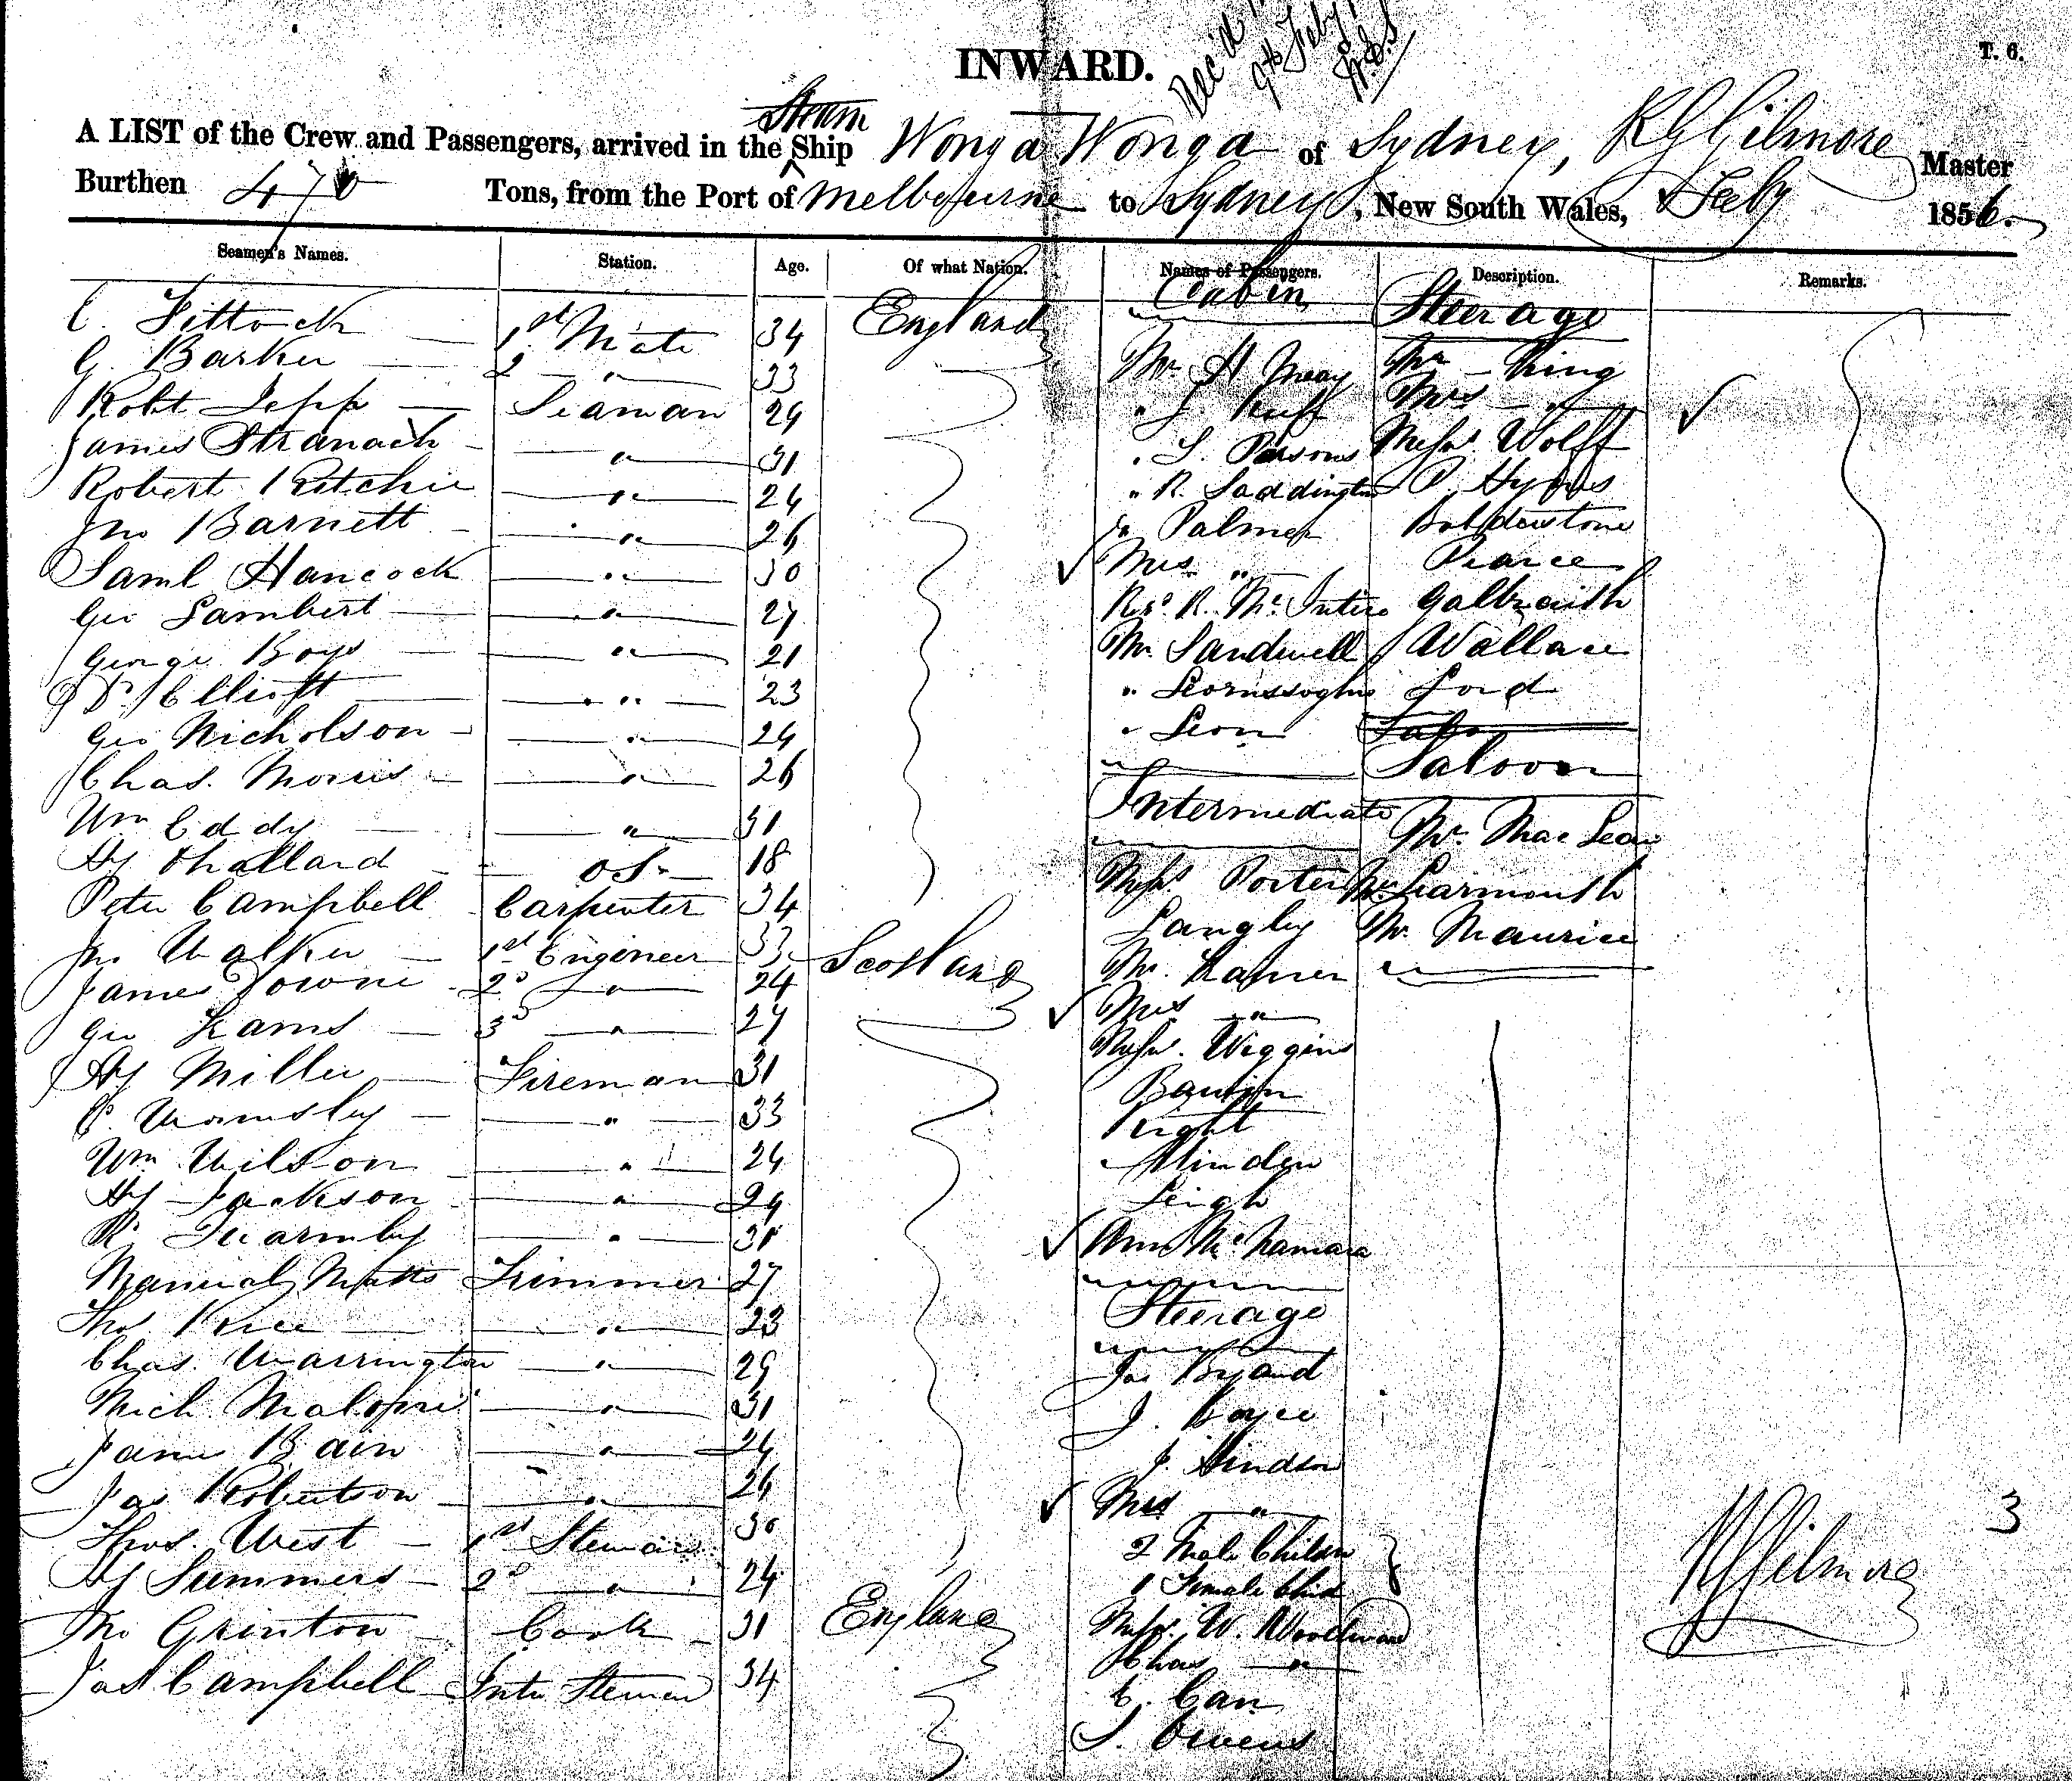 INWARD.
T. 6.
Rec'd
9th Feby
A LIST of the Crew and Passengers, arrived in the Steam Ship Wonga Wonga of Sydney, R G Gilmore Master
Burthen 470 Tons, from the Port of Melbourne to Sydney, New South Wales, Feby 1856.
Seamen's Names. Station. Age. Of what Nation. Names of Passengers. Description. Remarks.
Cabin Steerage
C. Fittock 1st Mate 34 England
G. Barker 2 " 33 Mr H Moay Mr King
Robt Jepp Seaman 29 " J. Huff Mrs "
James Stranach " 31 " S. Parsons Messrs Wolff
Robert Ritchie " 24 " R. Saddington P. Hyams
Jno Barnett " 26 Jn Palmer
Saml Hancock " 30 Mrs " Pearce
Geo Lambert " 27 Revd R. McIntire Galbraith
George Boys " 21 Mr Sandwell Wallace
Elliott " 23 " Ford
Geo Nicholson " 24 " Leon
Chas. Morris " 26 Saloon
Wm Eddy " 31 Intermediate Mr. MacLean
Hy Challand OS. 18
Peter Campbell Carpenter 34 Messrs Porter Mr Learmonth
Jno Walker 1st Engineer 33 Scotland Langley Mr. Maurice
James Towne 2d " 24 Mr. Kamer
Geo Kams 3d " 27 Mrs "
Hy Miller Fireman 31 Messrs. Wiggins
P. Wamsley " 33
Wm Wilson " 24 Knight
Hy Jackson " 29 Minden
R. Quarmby " 31 Leigh
Manuel Matts Trimmer 27 Ann McNamara
Thos Price " 23 Steerage
Chas. Warrington " 29 Jas Byand
Mich. Malone " 31 J. Boyce
James Bain " 24 J. Hindson
Jas Robertson " 26 Mrs "
Thos. West 1st Steward 30 2 Male Children
Hy Summers 2d " 24 1 Female Child
Jno Grinton Cook 31 England Messrs. W. Woodward
Jas Campbell Inter Steward 34 Chas "
C. Can
S. Owens
R G Gilmore
3